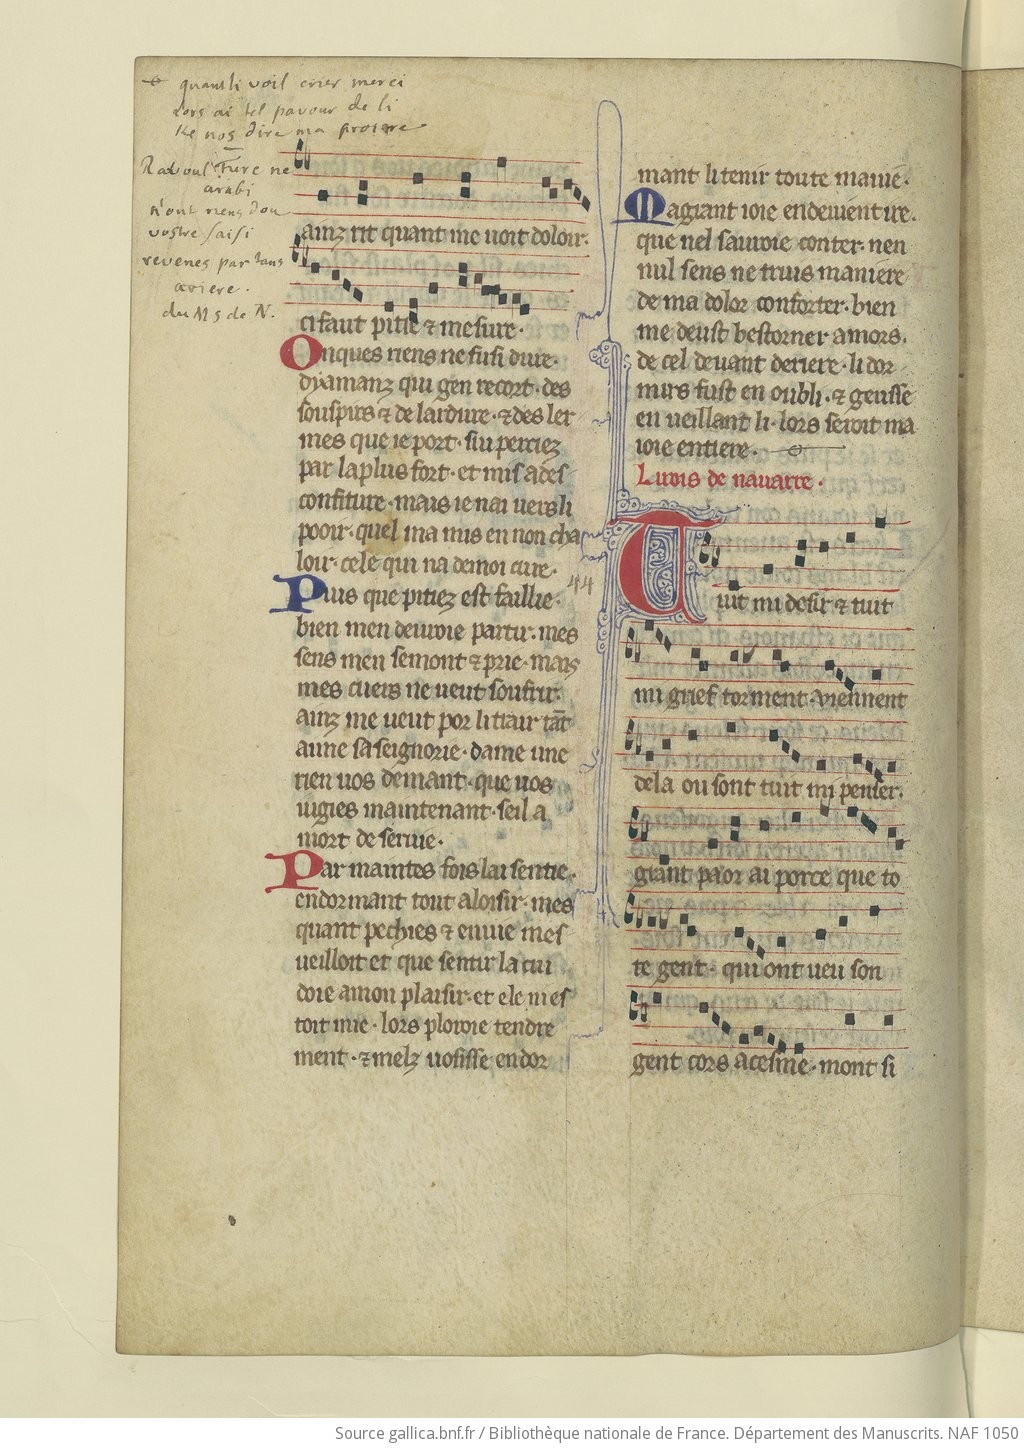 quant li voil crier merci
lors ai tel pavour de li
Ke nos dire ma proiere
Radoul Turc ne
arabi
n'ont riens dou
vostre saisi
revenes par tans
ariere.
du Ms de N.
ainz rit quant me voit doloir.
ci faut pitie ⁊ mesure.
Onques riens ne fu si dure.
dyamanz qui gen recort. des
souspirs ⁊ de lardure. ⁊ des ler
mes que ie port. siu perciez
par la plus fort. et mis a des
confiture. mais ie nai vers li
pooir. quel ma mis en non cha
loir. cele qui na de moi cure.
Puis que pitiez est faillie.
bien men devroie partir. mes
sens men semont ⁊ prie. mais
mes cuers ne veut soufrir.
ainz me veut por li trair tāt
aime sa seignorie. dame une
rien vos demant. que vos
iugies maintenant. seil a
mort deservie.
Par maintes fois lai sentie.
en dormant tout a loisir. mes
quant pechies ⁊ envie mes
veilloit et que sentir la cui
doie a mon plaisir. et ele nies
toit mie. lors ploroie tendre
ment. ⁊ melz vosisse en dor
mant li tenir toute ma vie.
Magrant ioie en devient ire.
que nel savroie conter. nen
nul sens ne truis maniere
de ma dolor conforter. bien
me deust bestorner amors.
de cel devant deriere. li dor
mirs fust en oubli. ⁊ geusse
en veillant li. lors seroit ma
ioie entiere.
Li rois de navarre.
44
Tuit mi desir ⁊ tuit
mi grief torment. viennent
de la ou sont tuit mi penser.
grant paor ai porce que to
te gent. qui ont veu son
gent cors acesme. mont si
Source gallica.bnf.fr / Bibliothèque nationale de France. Département des Manuscrits. NAF 1050